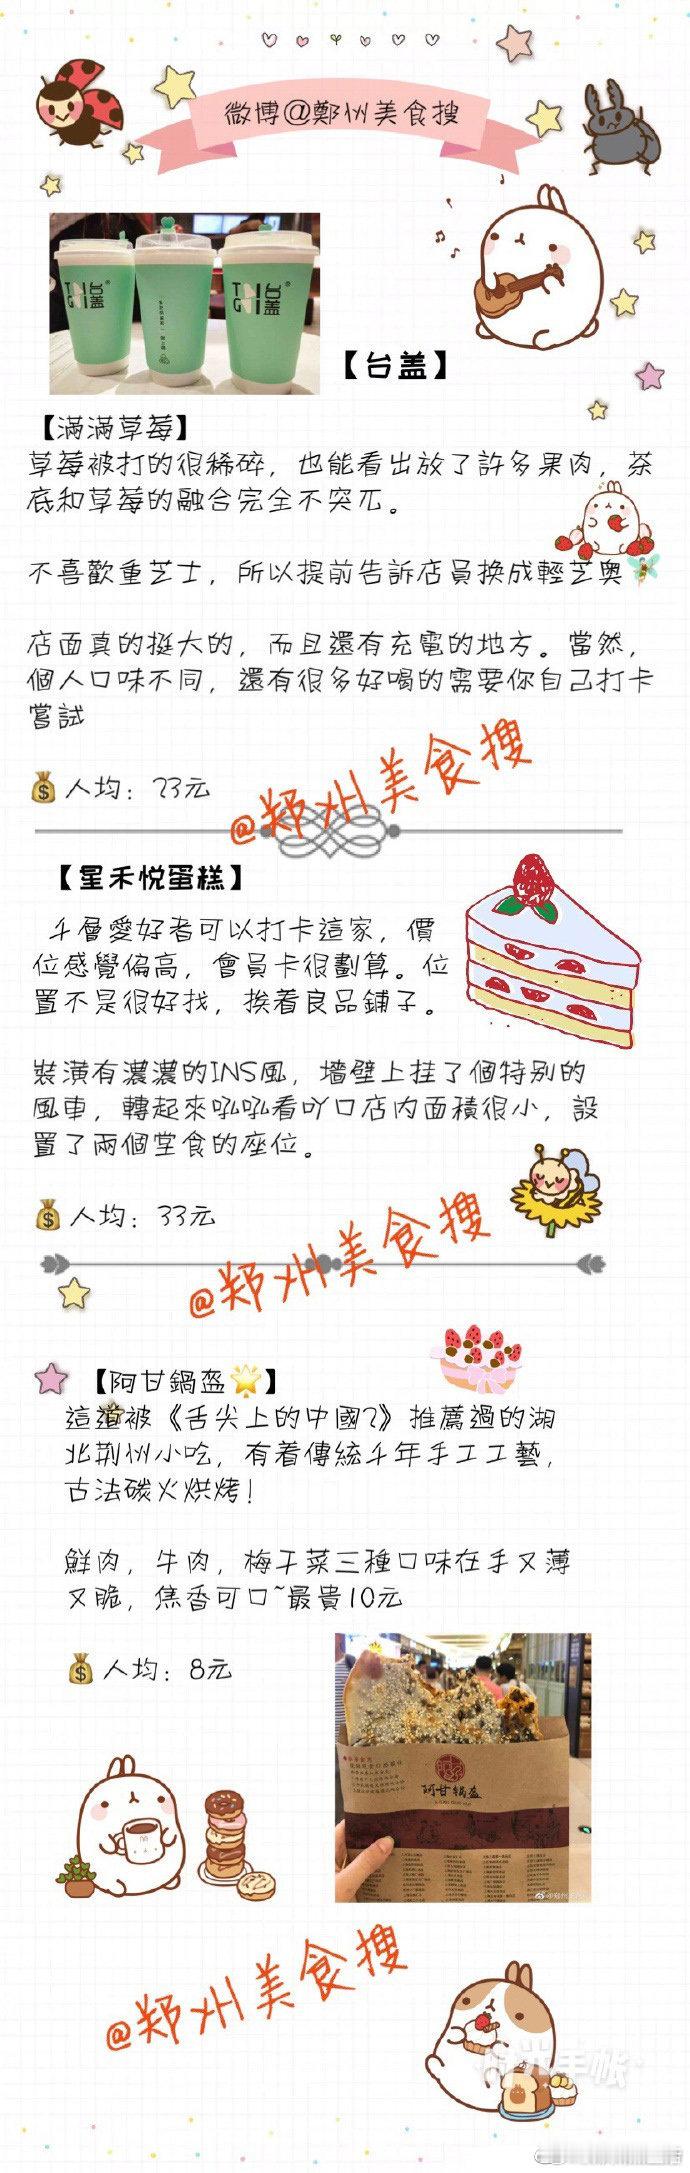 微博@鄭州美食搜
台盖
【台盖】
【滿滿草莓】
草莓被打的很稀碎，也能看出放了許多果肉，茶
底和草莓的融合完全不突兀。
不喜歡重芝士，所以提前告訴店員換成輕芝奥
店面真的挺大的，而且還有充電的地方。當然，
個人口味不同，還有很多好喝的需要你自己打卡
嘗試
人均：23元
@郑州美食搜
【星禾悦蛋糕】
千層愛好者可以打卡這家，價
位感覺偏高，會員卡很劃算。位
置不是很好找，挨着良品鋪子。
裝潢有濃濃的INS風，墙壁上挂了個特别的
風車，轉起來吼吼看吖口店内面積很小，設
置了兩個堂食的座位。
人均：33元
@郑州美食搜
【阿甘鍋盔🌟】
這道被《舌尖上的中國2》推薦過的湖
北荆州小吃，有着傳統千年手工工藝，
古法碳火烘烤！
鮮肉，牛肉，梅干菜三種口味在手又薄
又脆，焦香可口~最貴10元
人均：8元
阿甘锅盔
@郑州美食搜
时光手帐